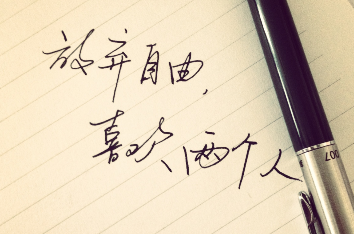 放弃自由,
喜欢、两个人
007